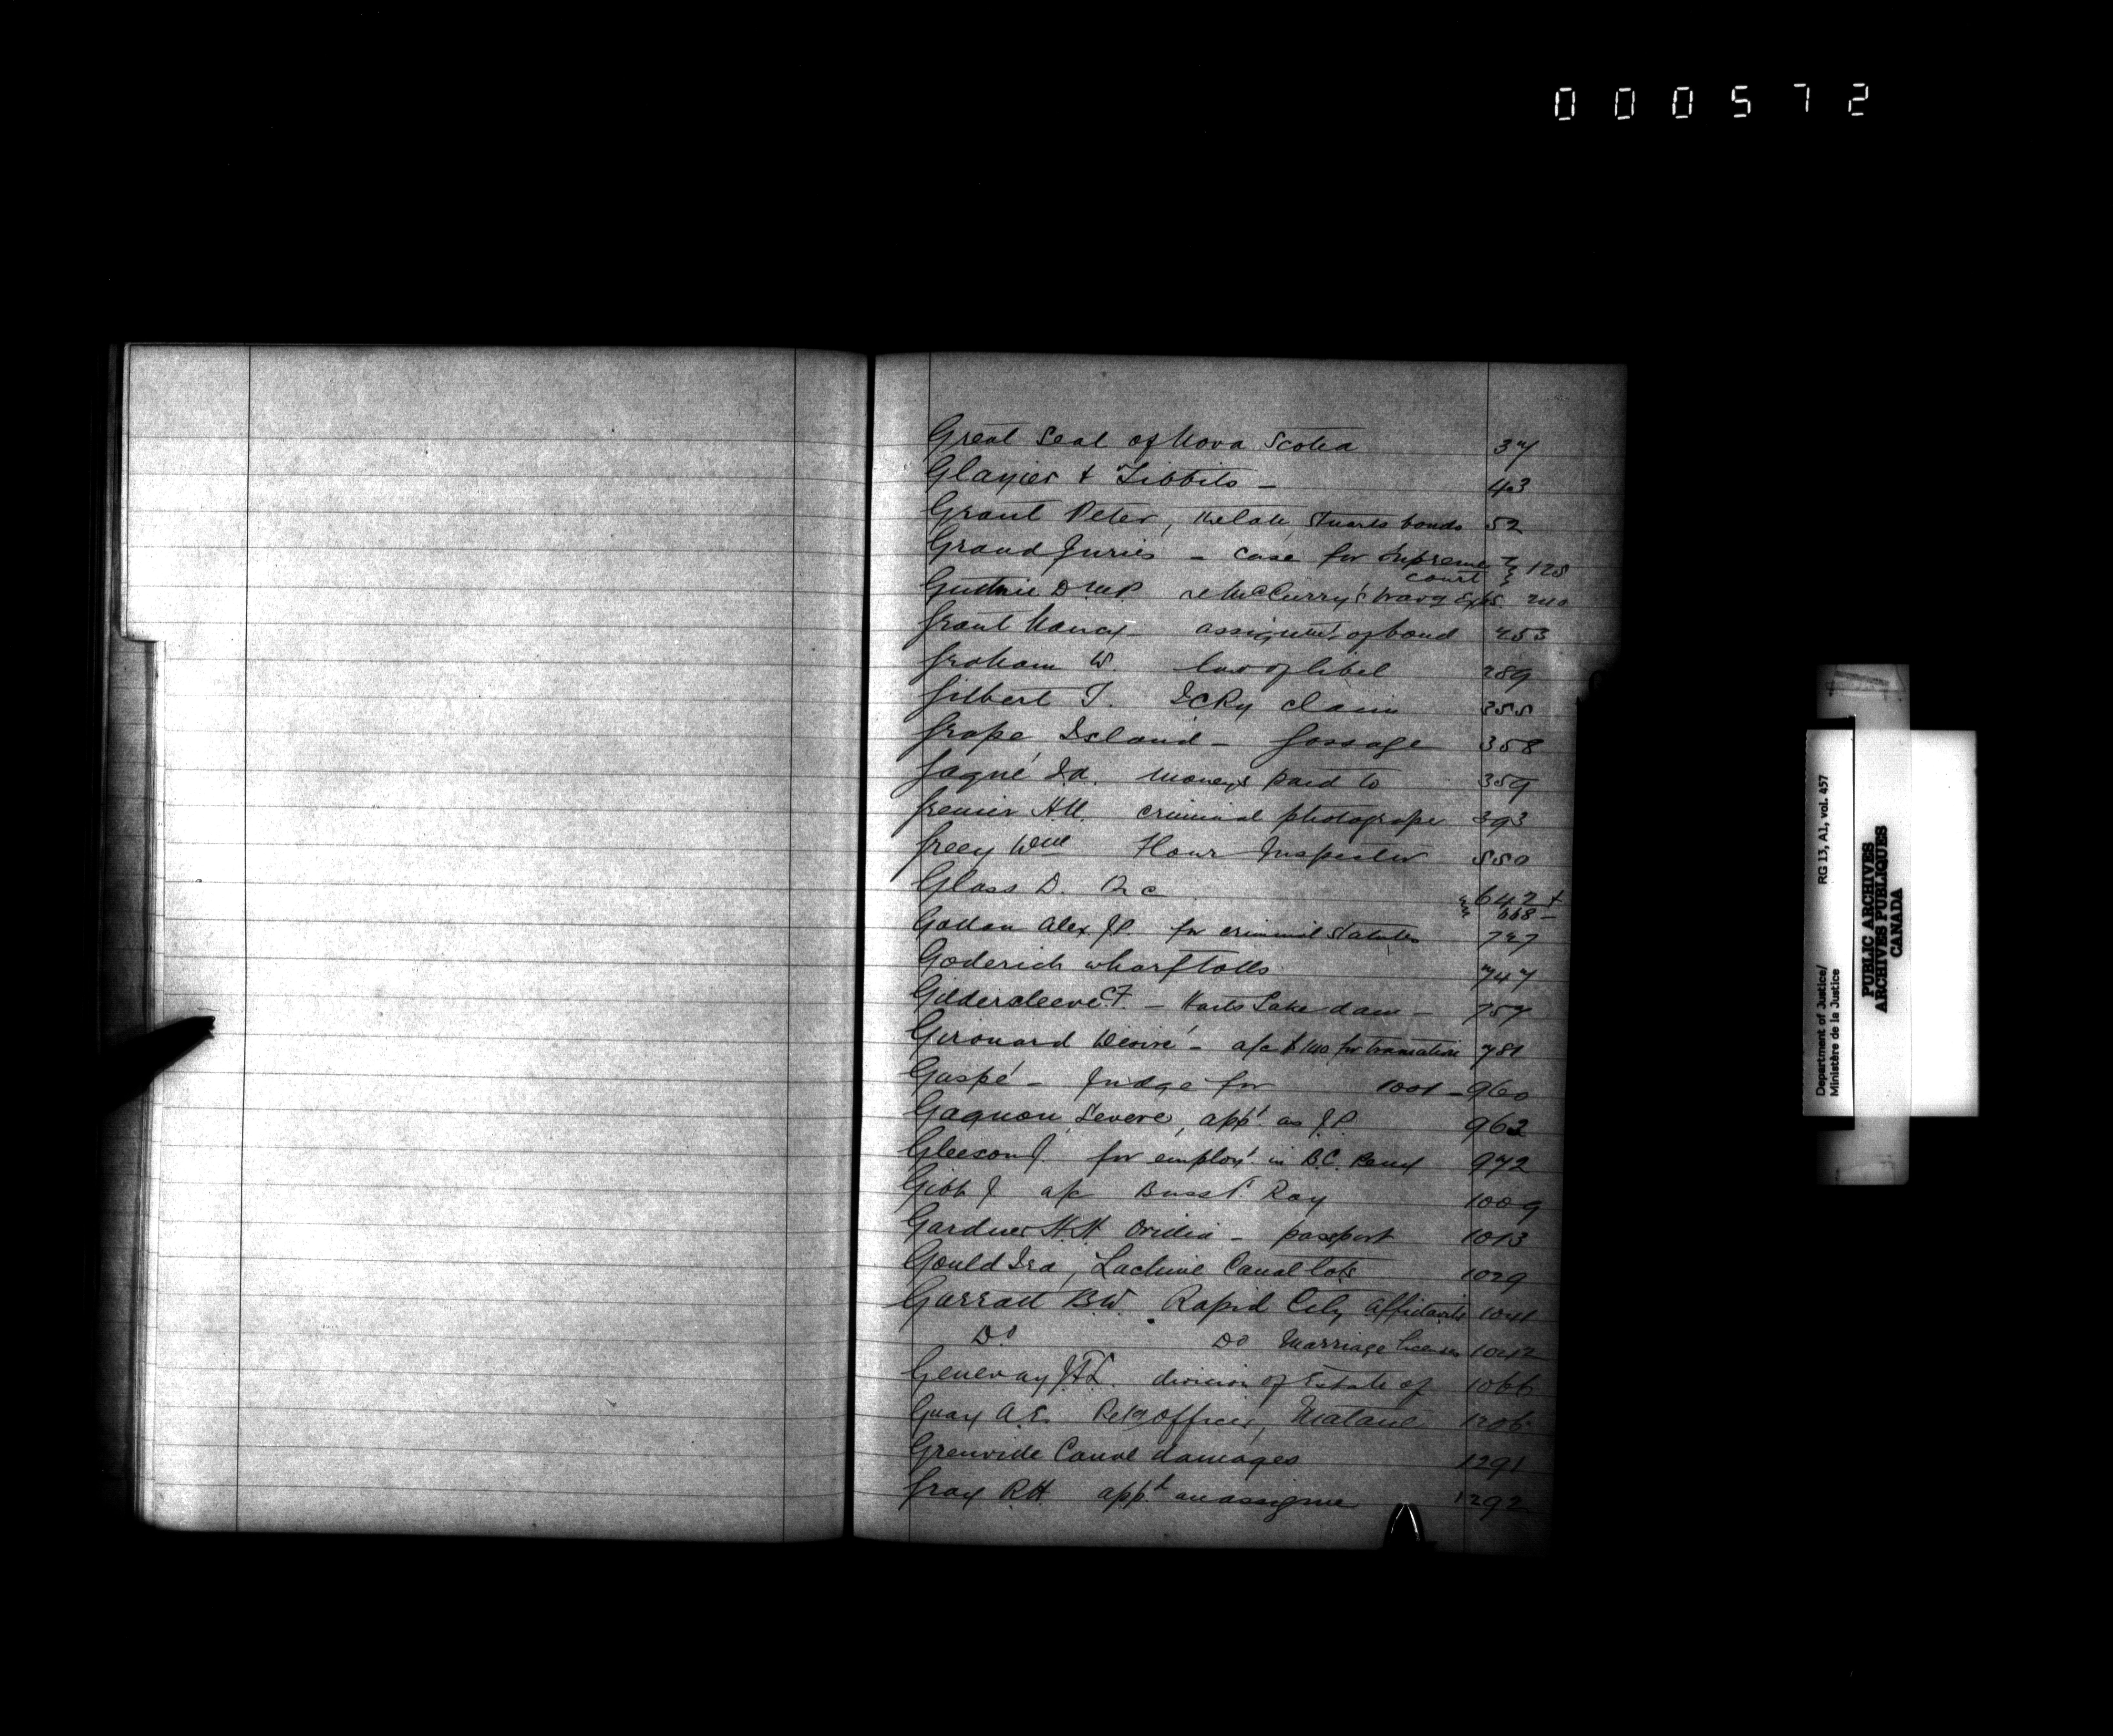 000572
Great Seal of Nova Scotia 37
Glazier & Tibbits - 43
Grant Peter, the late, Stuarts bonds 52
Grand Juries - case for Supreme
court } 128
Guthrie D MP re McCurry's trav'g Exps 240
Grant Nancy assignmt of bond 253
Graham W. law of libel 289
Gilbert T. ICRy claim 355
Grape Island - Gossage 358
Gagné Jd. moneys paid to 359
Grenier H.U. criminal photograps 393
Greey Wm Flour Inspector 550
Glass D. Q c 642 +
668 -
Gottan Alex. J.P. for criminal statutes 727
Goderich wharf tolls 747
Gildersleeve CF - Harts Lake dam - 757
Girouard Desiré - a/c $140 for translation 781
Gaspé - Judge for 1001 - 960
Gagnon Severe, app't as J.P. 962
Gleeson J. for employt. in B.C. Peny 972
Gibb J a/c Buss t Ray 1009
Gardner H.H. Oridia - passport 1013
Gould Ira, Lachine Canal lots 1029
Garratt B.W. Rapid City affidavits 1041
Do Do Marriage licenses 1042
Genevay J.F.L. division of Estate of 1066
Guay A.E. Retg officer, Matane 1206
Grenville Canal damages 1291
Gray R.H. appt as assignee 1292
Department of Justice/ RG 13, A1, vol. 457
Ministère de la Justice
PUBLIC ARCHIVES
ARCHIVES PUBLIQUES
CANADA